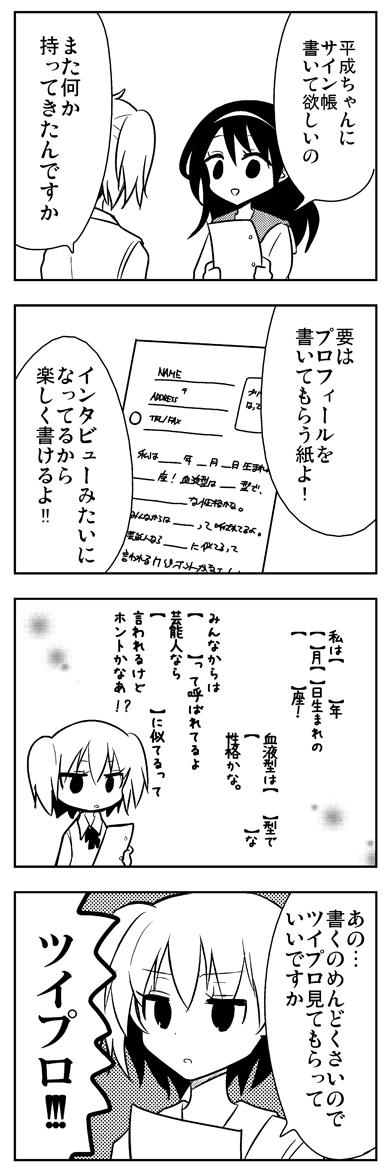 平成ちゃんに
サイン帳
書いて欲しいの
また何か
持ってきたんですか
要は
プロフィールを
書いてもらう紙よ！
NAME
〒
ADDRESS
TEL/FAX
私は＿＿年＿月＿日生まれの
＿＿座！血液型は＿型で、
＿＿な性格かな。
みんなからは＿＿って呼ばれてるよ。
芸能人なら＿＿に似てるって
インタビューみたいに
なってるから
楽しく書けるよ!!
私は【　】年
【　】月【　】日生まれの
【　】座！
血液型は【　】型で
【　】な
性格かな。
みんなからは
【　】って呼ばれてるよ
芸能人なら
【　】に似てるって
言われるけど
ホントかなあ!?
あの…
書くのめんどくさいので
ツイプロ見てもらって
いいですか
ツイプロ!!!